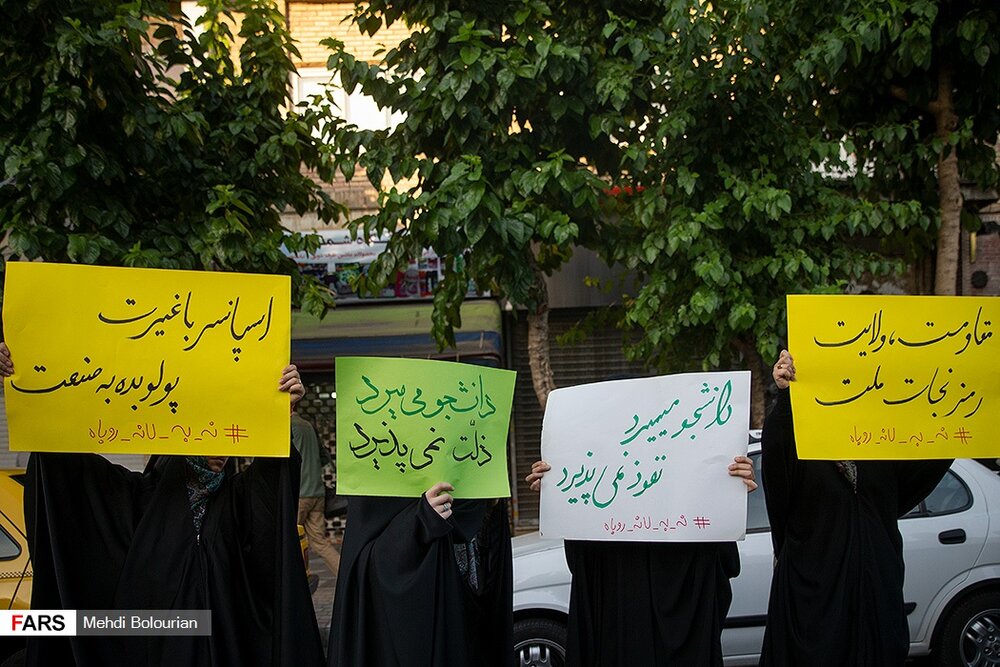 اسپانسر باغیرت
پولو بده به صنعت
#نه_به_لانه_روباه
دانشجو می میرد
ذلّت نمی پذیرد
دانشجو میمیرد
نفوذ نمی پذیرد
#نه_به_لانه_روباه
مقاومت، ولایت
رمز نجات ملت
#نه_به_لانه_روباه
FARS Mehdi Bolourian